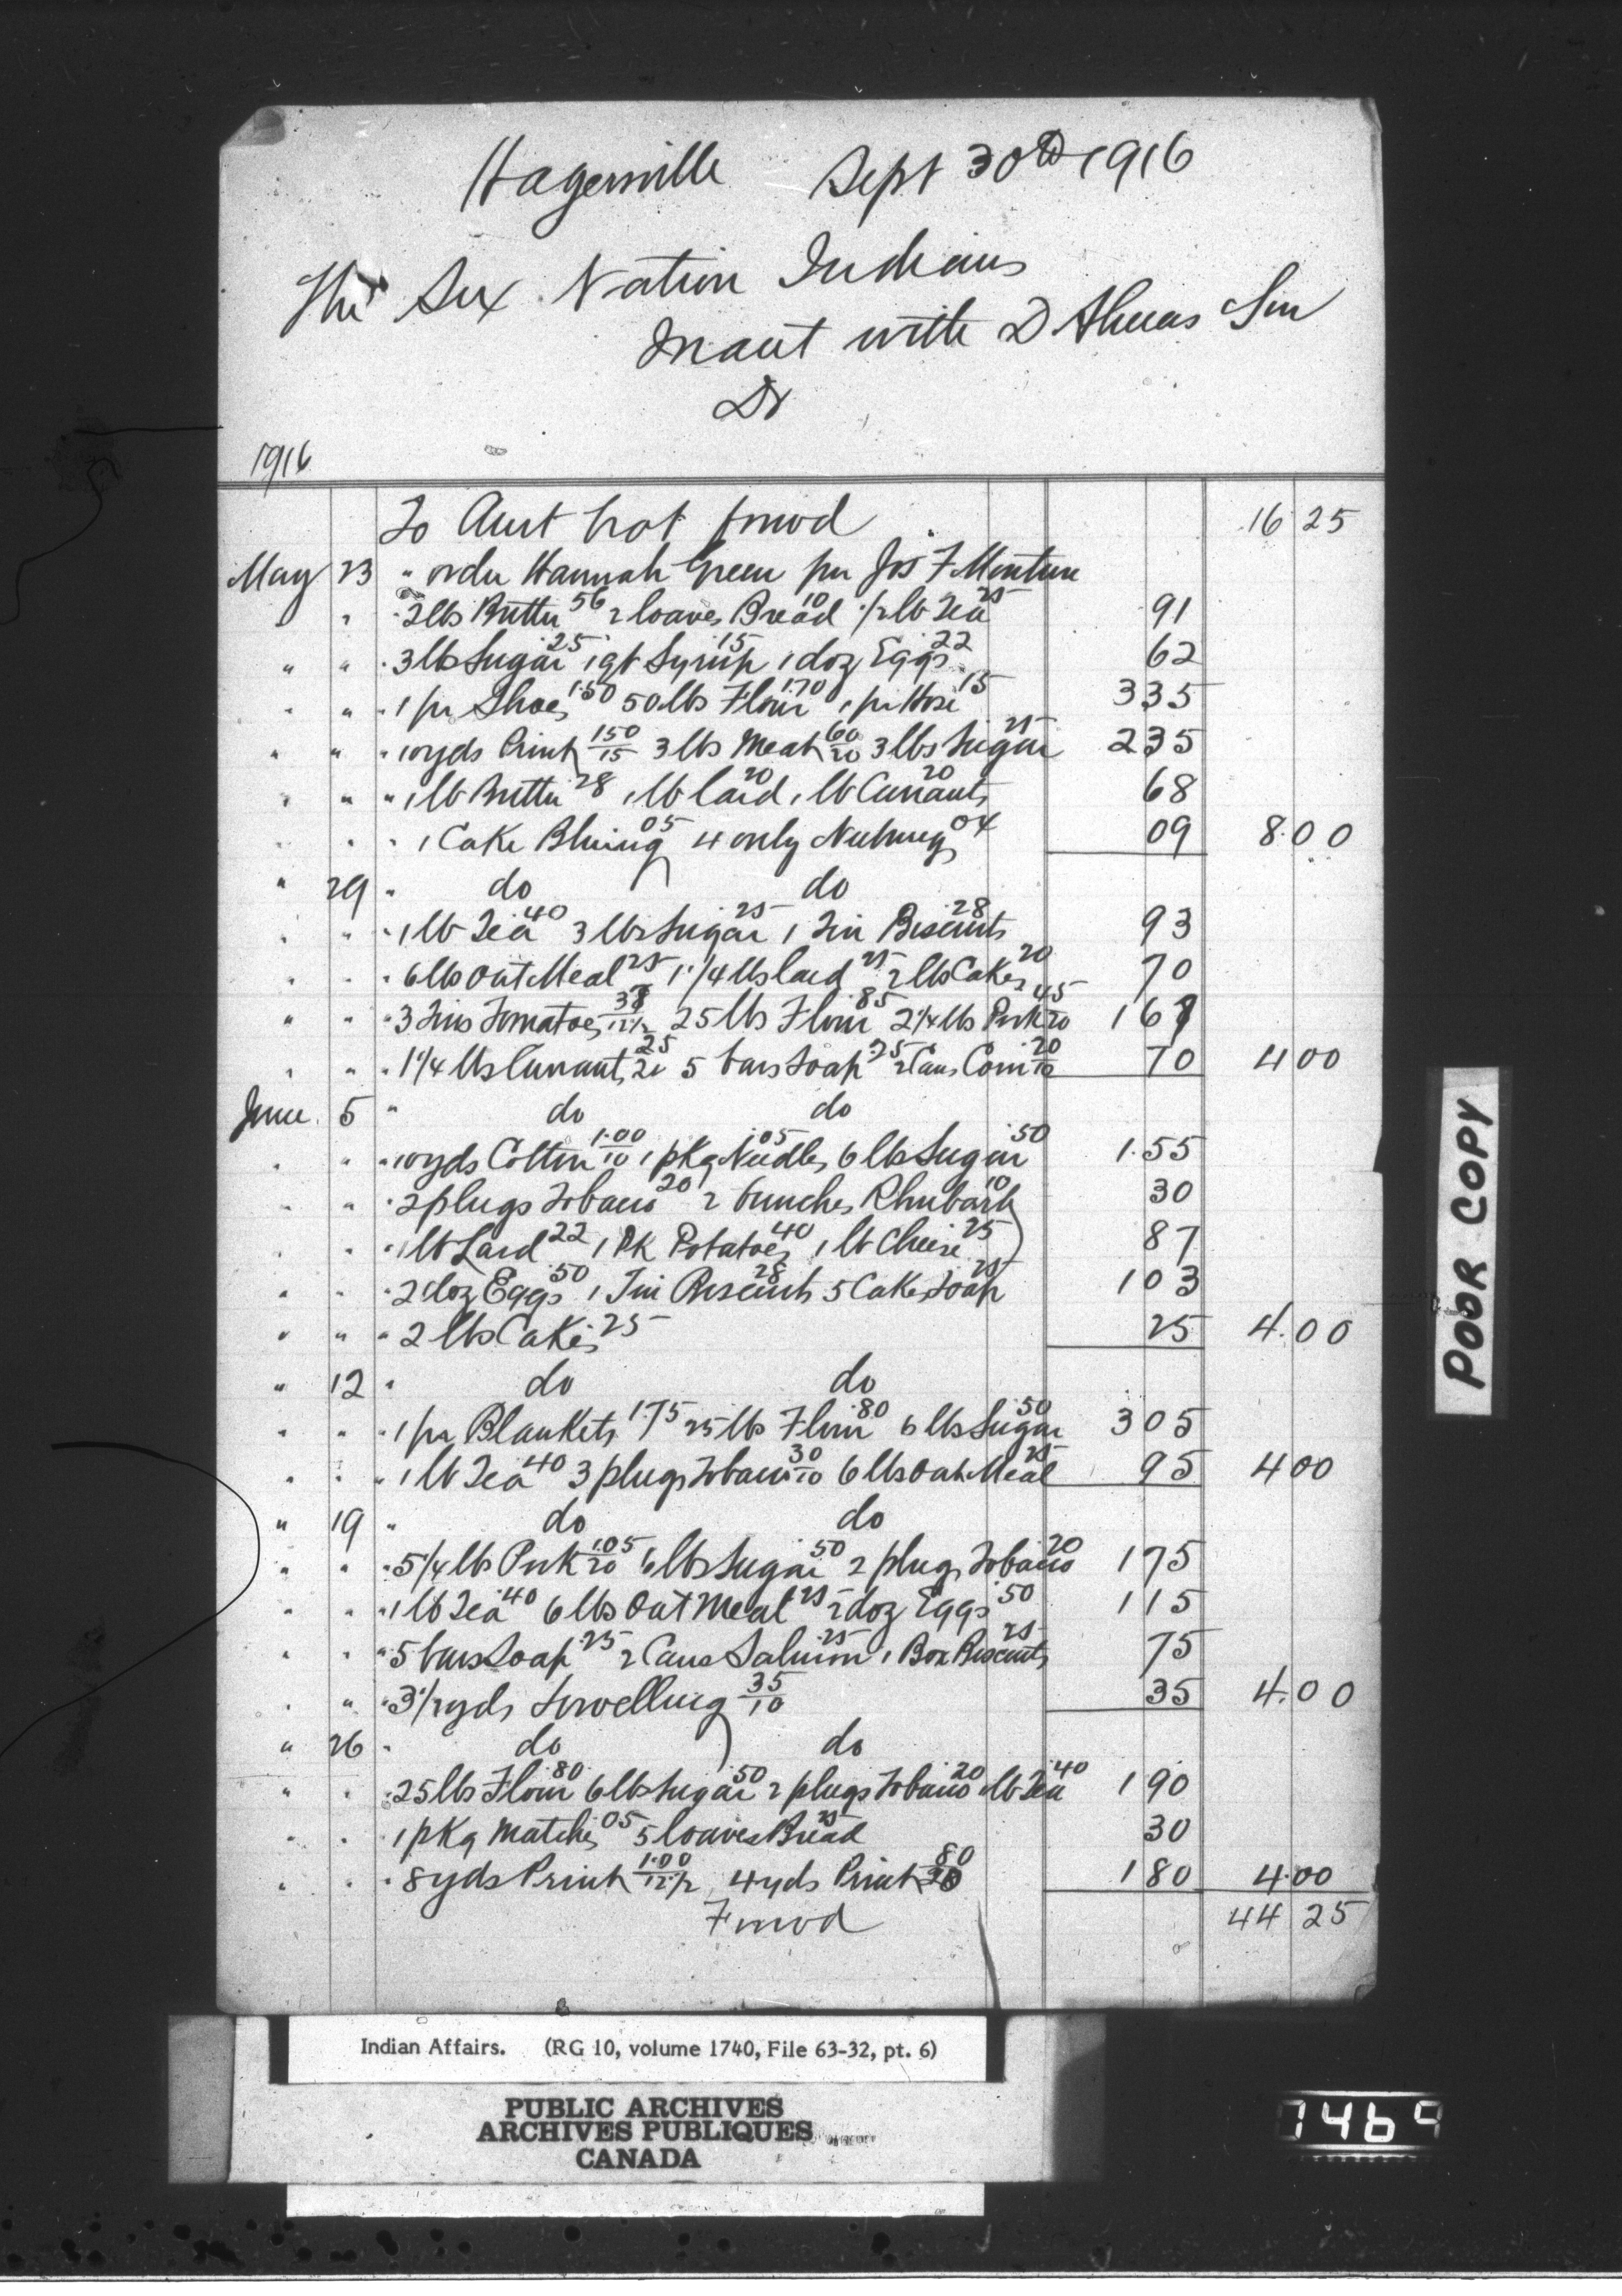 Hagersville Sept 30th 1916
The Six Nation Indians
In acct with D Almas Son
Dr
1916
To Amt brot forwd 16 25
May 23 " order Hannah Green per Jos F Monture
" " " 2 lbs Butter 56 2 loaves Bread 10 1/2 lb Tea 25 91
" " " 3 lb Sugar 25 1 qt Syrup 15 1 doz Eggs 22 62
" " " 1 pr Shoes 1.50 50 lbs Flour 1.70 1 pr Hose 15 3 35
" " " 10 yds Print 150/15 3 lbs Meat 60/20 3 lbs Sugar 25 2 35
" " " 1 lb Butter 28 1 lb Lard 20 1 lb Currants 20 68
" " " 1 Cake Bluing 05 4 only Nutmegs 04 09 8.00
" 29 " do do
" " " 1 lb Tea 40 3 lbs Sugar 25 1 Tin Biscuits 28 93
" " " 6 lbs Oat Meal 25 1 1/4 lbs lard 25 2 lbs Cakes 20 70
" " " 3 Tins Tomatoes 38/12 1/2 25 lbs Flour 85 2 1/4 lbs Pork 45/20 1 67
" " " 1 1/4 lbs Currants 25/20 5 bars Soap 25 2 Cans Corn 20/10 70 4 00
June 5 " do do
" " " 10 yds Cotton 1.00/10 1 pkg Needles .05 6 lbs Sugar 50 1.55
" " " 2 plugs Tobacco 20 2 bunches Rhubarb 10 30
" " " 1 lb Lard 22 1 Pk Potatoes 40 1 lb Cheese 25 87
" " " 2 doz Eggs 50 1 Tin Biscuits 28 5 Cakes Soap 25 1 03
" " " 2 lbs Cakes 25 25 4.00
" 12 " do do
" " " 1 pr Blankets 1.75 25 lbs Flour 80 6 lbs Sugar 50 3 05
" " " 1 lb Tea 40 3 plugs Tobacco 30/10 6 lbs Oat Meal 25 95 4 00
" 19 " do do
" " " 5 1/4 lbs Pork 1.05/20 6 lbs Sugar 50 2 plugs Tobacco 20 1 75
" " " 1 lb Tea 40 6 lbs Oat Meal 25 2 doz Eggs 50 1 15
" " " 5 bars Soap 25 2 Cans Salmon 25 1 Box Biscuits 25 75
" " " 3 1/2 yds Towelling 35/10 35 4.00
" 26 " do do
" " " 25 lbs Flour 80 6 lbs Sugar 50 2 plugs Tobacco 20 1 lb Tea 40 1 90
" " " 1 pkg Matches 05 5 loaves Bread 25 30
" " " 8 yds Print 1.00/12 1/2 4 yds Print 80/20 1 80 4.00
Forwd 44 25
POOR COPY
Indian Affairs. (RG 10, volume 1740, File 63-32, pt. 6)
PUBLIC ARCHIVES
ARCHIVES PUBLIQUES
CANADA
7469